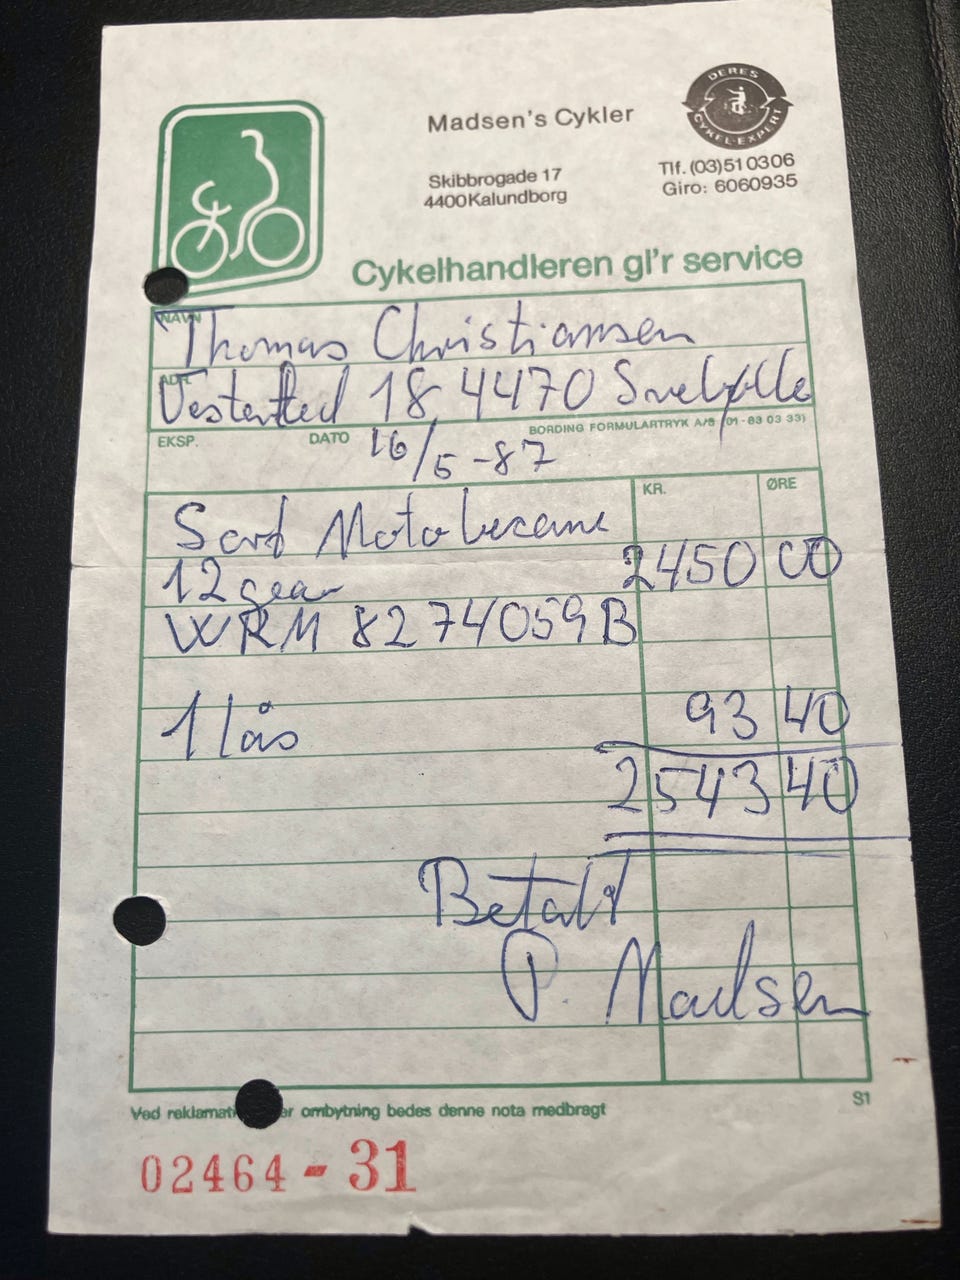 DERES CYKEL-EXPERT
Madsen's Cykler
Skibbrogade 17
4400 Kalundborg
Tlf. (03) 51 0306
Giro: 6060935
Cykelhandleren gi'r service
NAVN
Thomas Christiansen
ADR.
18, 4470 Svebølle
EKSP. DATO 16/5-87
BORDING FORMULARTRYK A/S (01-83 03 33)
KR. ØRE
Sort Motobecane
12 gear 2450 00
WRM 8274059B
1 lås 93 40
2543 40
Betalt
P. Madsen
Ved er ombytning bedes denne nota medbragt
S1
02464-31